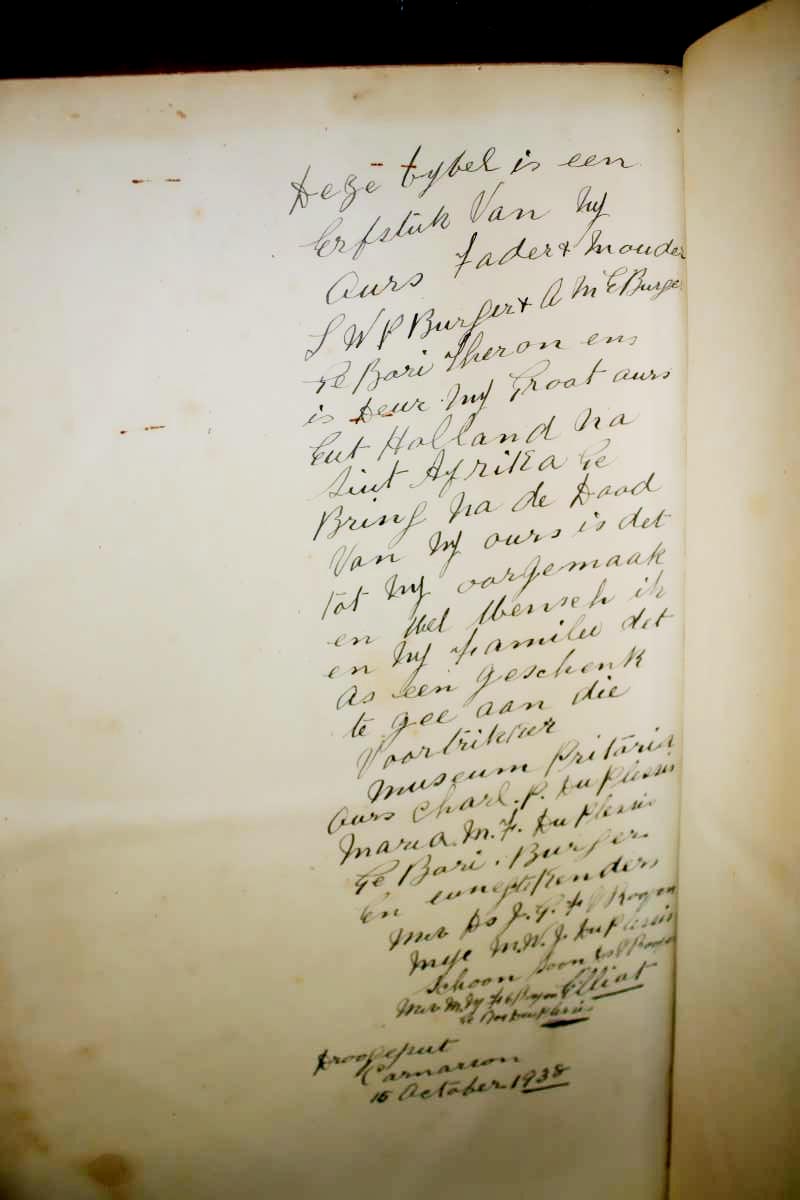 Deze bybel is een
Erfstuk Van my
Ours Fader & Mouder
S W P Burger & A M E Burger
Ge Bori Theron ens
is Deur my Groat aurs
Eut Holland na
Siut Afrika Ge
Bring na de Daod
Van my ours is det
tot my oorgemaak
en Wel Wensch ik
en my Familie det
as een geschenk
te gee aan die
Voortrikur
Museum Pritoria
Ours Charl. P. Du Plessis
Maria. M. F. Du Plessis
Ge Bori. Burger
En Kenders
Mev Ds J. G. F
Meje M. W. J. Du Plessis
Schoon Soon
Mev Elliot
Droogeput
Carnarvon
15 October 1938